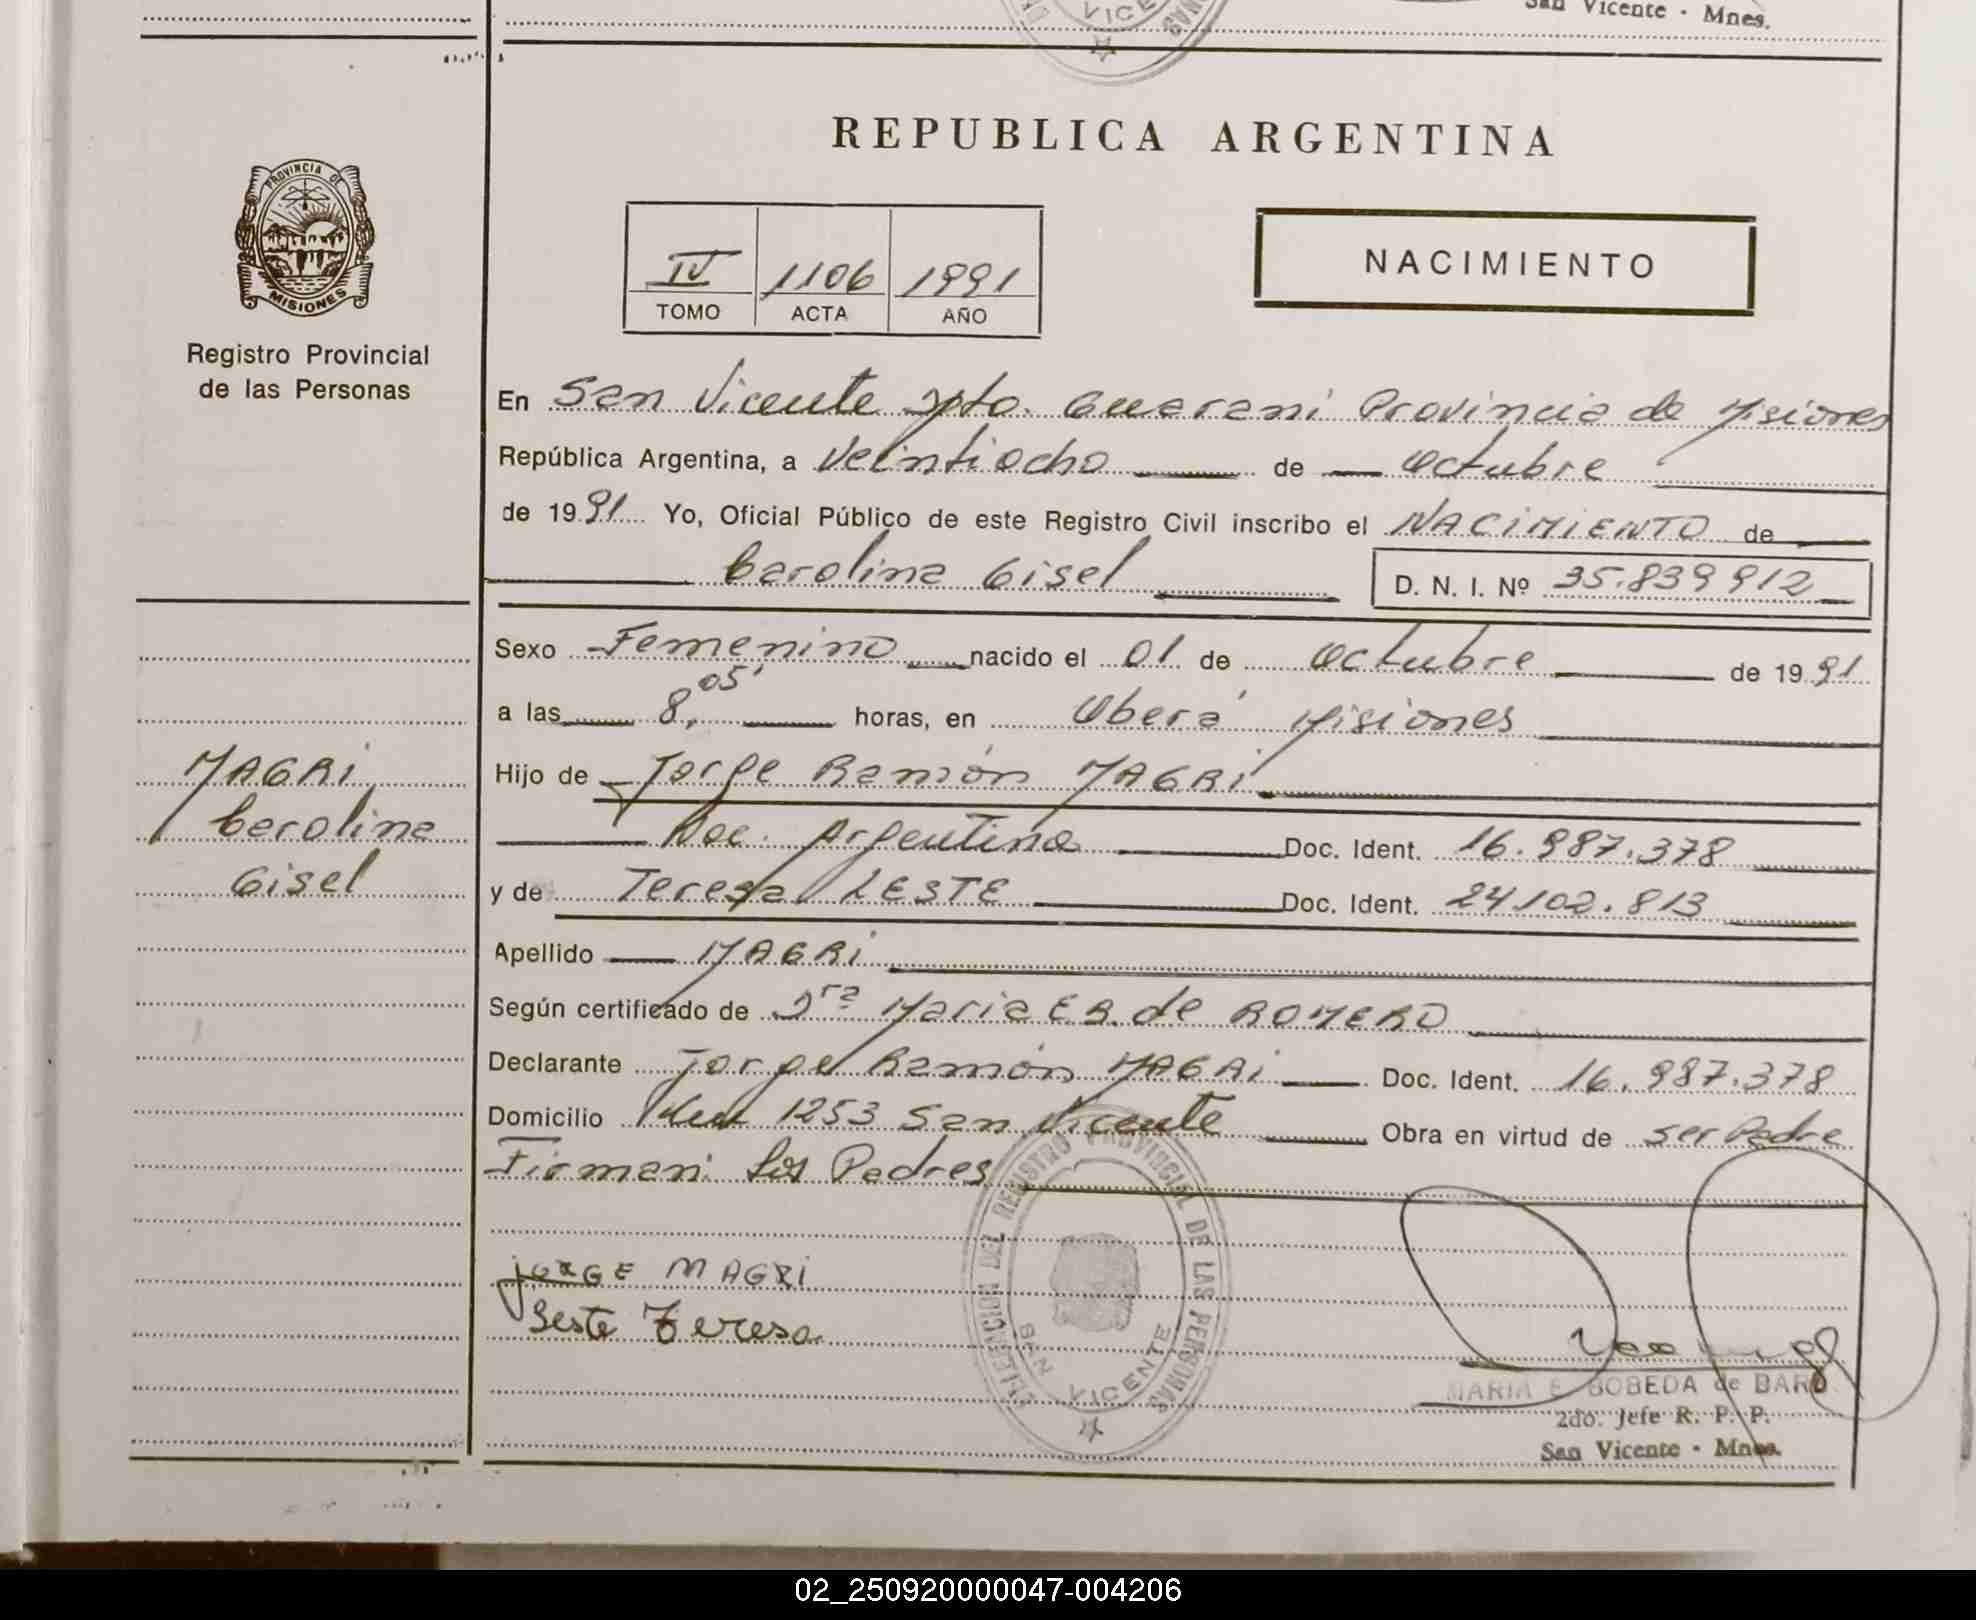 San Vicente - Mnes.
VICE
REPUBLICA ARGENTINA
PROVINCIA DE
MISIONES
Registro Provincial
de las Personas
IV 1106 1991
TOMO ACTA AÑO
NACIMIENTO
En San Vicente Dpto. Guarani Provincia de Misiones
República Argentina, a Veintiocho de Octubre
de 1991 Yo, Oficial Público de este Registro Civil inscribo el NACIMIENTO de
Carolina Gisel D. N. I. Nº 35.839912
Sexo Femenino nacido el 01 de Octubre de 1991
a las 8,05' horas, en Oberá Misiones
Hijo de Jorge Ramón MAGRI
Nac. Argentina Doc. Ident. 16.987.378
y de Teresa LESTE Doc. Ident. 24102.813
Apellido MAGRI
Según certificado de Dra Maria E R. de ROMERO
Declarante Jorge Ramón MAGRI Doc. Ident. 16.987.378
Domicilio 1253 San Vicente Obra en virtud de ser Padre
Firman: Los Padres
MAGRI
Carolina
Gisel
JORGE MAGRI
Leste Teresa
DELEGACION DEL REGISTRO PROVINCIAL DE LAS PERSONAS
SAN VICENTE
MARIA E. BOBEDA de BARO
2do. Jefe R. P. P.
San Vicente - Mnes.
02_250920000047-004206